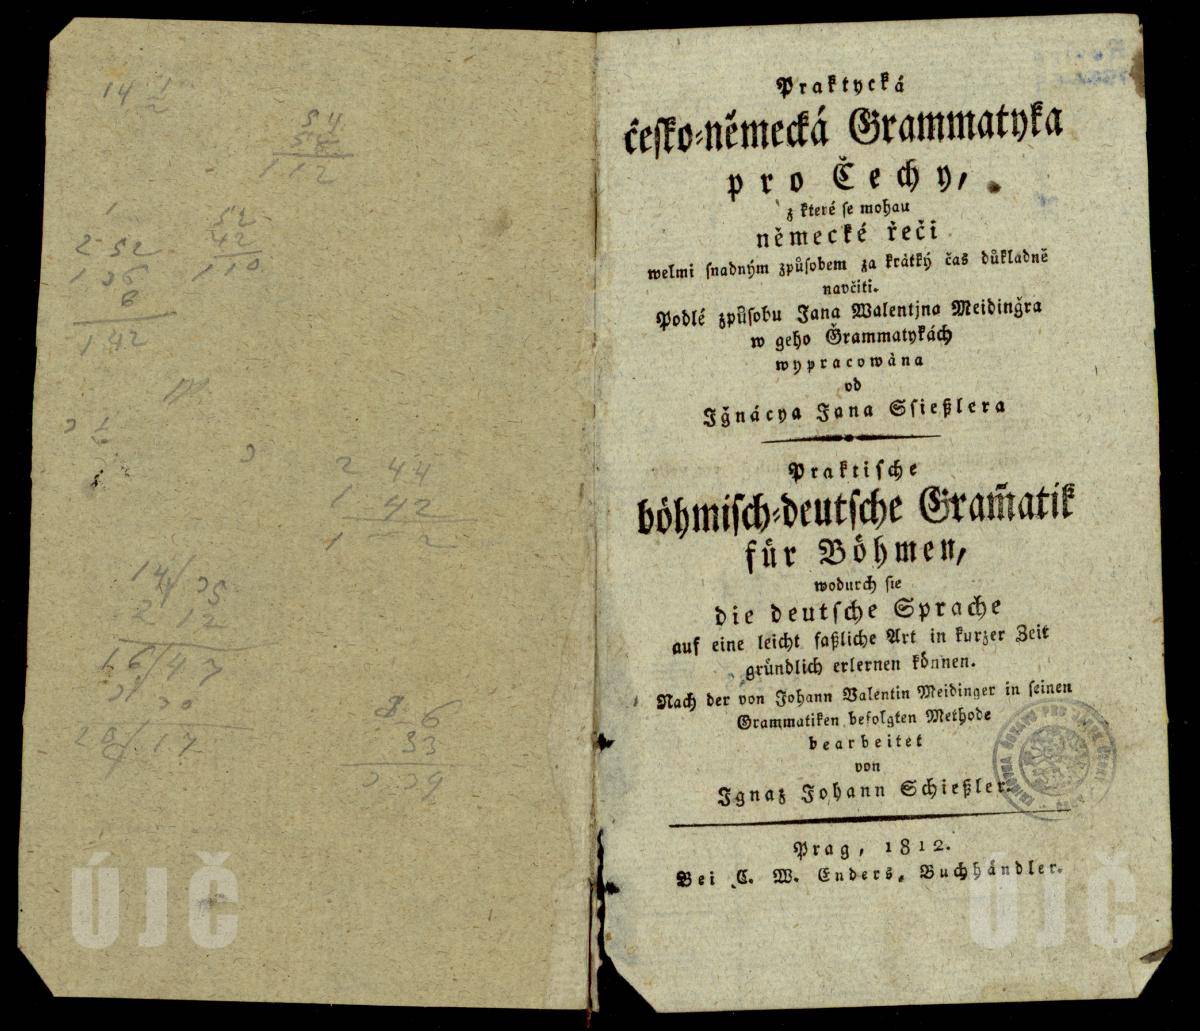 14 1
54
58
112
1
2 52
1 36
8
142
52
42
110
2 44
1 42
2 12
16/47
36
33
ÚJČ
Praktycká
česko-německá Grammatyka
pro Čechy,
z které se mohau
německé řeči
welmi snadným způsobem za krátký čas důkladně
navčiti.
Podlé způsobu Jana Walentjna Meidinǧra
w geho Ǧrammatykách
wypracowàna
od
Iǧnácya Jana Ssießlera
Praktische
böhmisch-deutsche Gram̅atik
für Böhmen,
wodurch sie
die deutsche Sprache
auf eine leicht faßliche Art in kurzer Zeit
gründlich erlernen können.
Nach der von Johann Valentin Meidinger in seinen
Grammatiken befolgten Methode
bearbeitet
von
Ignaz Johann Schießler.
Prag, 1812.
Bei C. W. Enders, Buchhändler.
ÚJČ